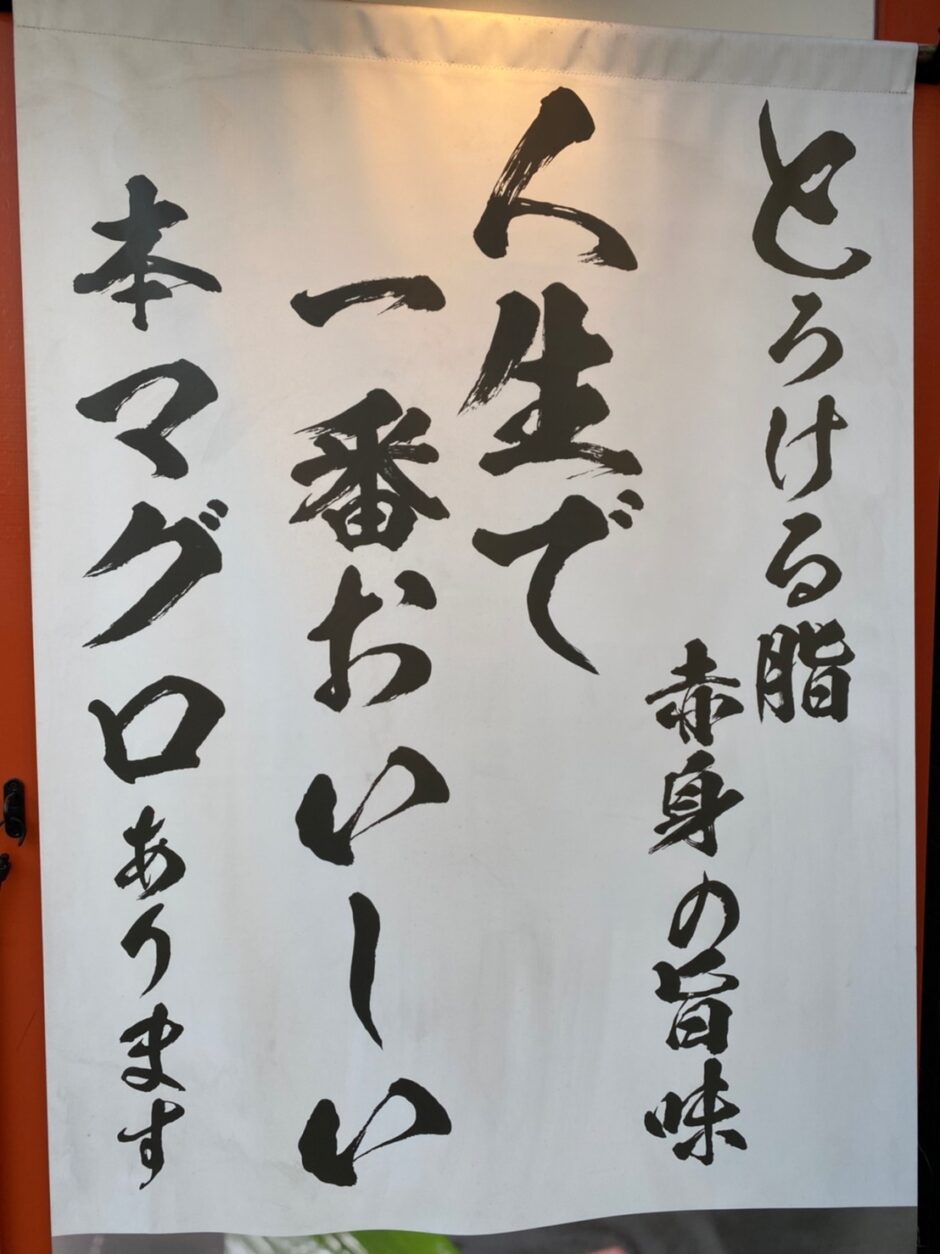 とろける脂
赤身の旨味
人生で
一番おいしい
本マグロあります